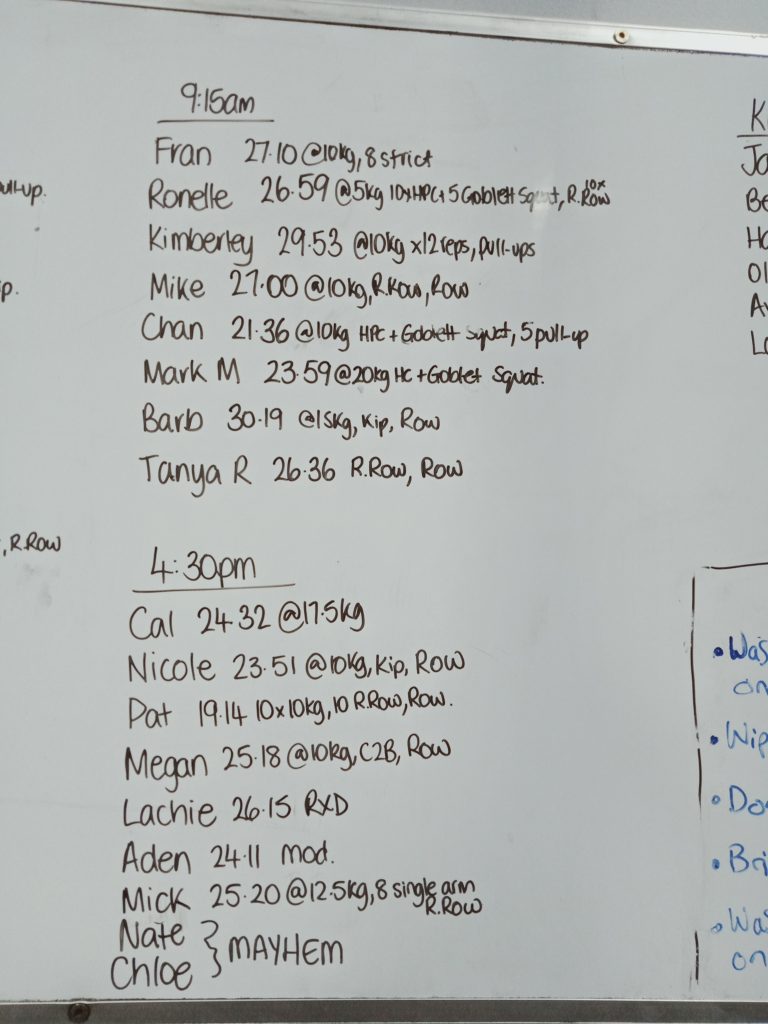 9:15am
Fran 27.10 @10kg, 8 strict
Ronelle 26.59 @5kg 10xHPC+5 Goblett Squat, R.Row 10x
Kimberley 29.53 @10kg x12 reps, pull-ups
Mike 27.00 @10kg, R.Row, Row
Chan 21.36 @10kg HPC + Goblett Squat, 5 pull-up
Mark M 23.59 @20kg HC + Goblet Squat.
Barb 30.19 @15kg, Kip, Row
Tanya R 26.36 R.Row, Row
4:30pm
Cal 24.32 @17.5kg
Nicole 23.51 @10kg, Kip, Row
Pat 19.14 10x10kg, 10 R.Row, Row.
Megan 25.18 @10kg, C2B, Row
Lachie 26.15 RXD
Aden 24.11 mod.
Mick 25.20 @12.5kg, 8 single arm
R.Row
Nate
Chloe } MAYHEM
, R.Row